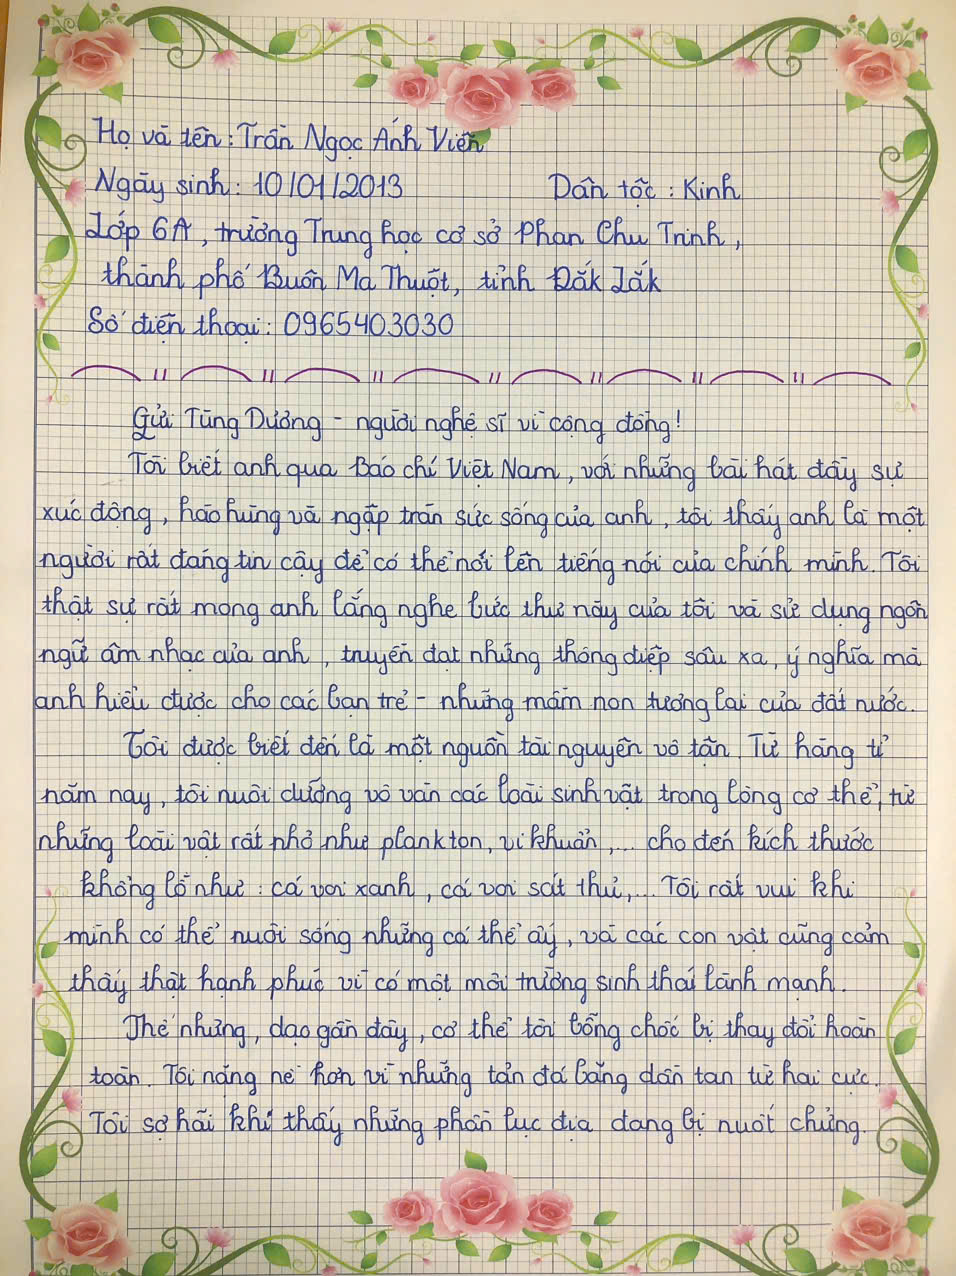 Họ và tên: Trần Ngọc Ánh Viên
Ngày sinh: 10/01/2013 Dân tộc: Kinh
Lớp 6A, trường Trung học cơ sở Phan Chu Trinh,
thành phố Buôn Ma Thuột, tỉnh Đắk Lắk
Số điện thoại: 0965403030
Gửi Tùng Dương - người nghệ sĩ vì cộng đồng!
Tôi biết anh qua Báo chí Việt Nam, với những bài hát đầy sự
xúc động, hào hùng và ngập tràn sức sống của anh, tôi thấy anh là một
người rất đáng tin cậy để có thể nói lên tiếng nói của chính mình. Tôi
thật sự rất mong anh lắng nghe bức thư này của tôi và sử dụng ngôn
ngữ âm nhạc của anh, truyền đạt những thông điệp sâu xa, ý nghĩa mà
anh hiểu được cho các bạn trẻ - những mầm non tương lai của đất nước.
Tôi được biết đến là một nguồn tài nguyên vô tận. Từ hàng tỉ
năm nay, tôi nuôi dưỡng vô vàn các loài sinh vật trong lòng cơ thể, từ
những loài vật rất nhỏ như plankton, vi khuẩn,... cho đến kích thước
khổng lồ như: cá voi xanh, cá voi sát thủ,... Tôi rất vui khi
mình có thể nuôi sống những cá thể ấy, và các con vật cũng cảm
thấy thật hạnh phúc vì có một môi trường sinh thái lành mạnh.
Thế nhưng, dạo gần đây, cơ thể tôi bỗng chốc bị thay đổi hoàn
toàn. Tôi nặng nề hơn vì những tản đá băng dần tan từ hai cực.
Tôi sợ hãi khi thấy những phần lục địa đang bị nuốt chửng.